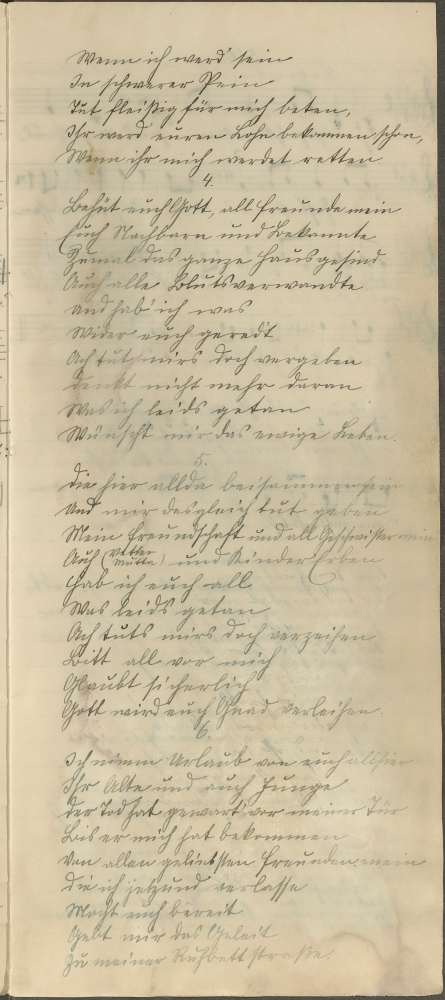 Wenn ich werd' sein
In schwerer Pein
Tut fleißig für mich beten,
Ihr werd euren Lohn bekommen schon,
Wenn ihr mich werdet retten
4.
Behüt euch Gott, all Freunde mein
Euch Nachbarn und Bekannte
Zumal das ganze Hausgesind
Auch alle Blutsverwandte
und hab' ich was
Wider euch geredt
Ach tuts mirs doch vergeben
denkt nicht mehr daran
Was ich leids getan
Wünscht mir das ewige Leben.
5.
Die hier allda beisammen sein
Und mir das gleich tut geben
Mein Freundschaft und all Geschwister mein
Auch (Vatter Mutter) und Kinder Erben
Hab ich euch all
Was leids getan
Ach tuts mirs doch verzeihen
Bitt all vor mich
Glaubt sicherlich
Gott wird euch Gnad verleihen.
6.
Ich nimm Urlaub von euch all hier
Ihr Alte und auch Junge
der Tod hat gewart' vor meiner Tür
Bis er mich hat bekommen
Von allen geliebsten Freunden mein
Die ich jetzund verlasse
Macht euch bereit
Gebt mir das Geleit
Zu meiner Ruhbettstraße.